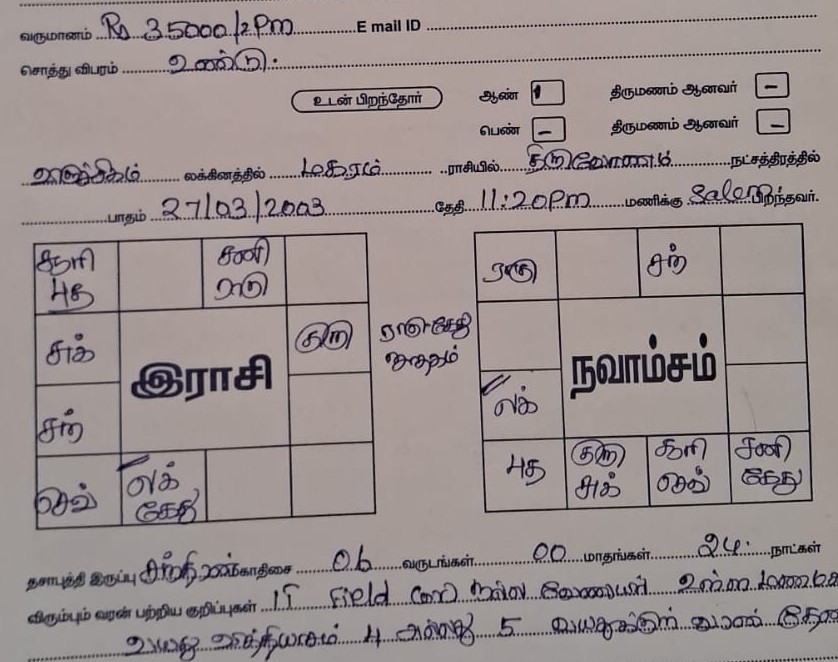 வருமானம் Rs 35000/2 Pm E mail ID
சொத்து விபரம் உண்டு.
உடன் பிறந்தோர் ஆண் 1 திருமணம் ஆனவர் -
பெண் - திருமணம் ஆனவர் -
லக்கினத்தில் மகரம் ராசியில் திருவோணம் நட்சத்திரத்தில்
பாதம் 27/03/2003 தேதி 11:20Pm மணிக்கு Salem பிறந்தவர்.
சூரி சனி ராகு சந்
புத ராகு
சுக் குரு ராகு கேது
இராசி நவாம்சம்
சந் லக்
செவ் லக் புத குரு சூரி சனி
கேது சுக் செவ் கேது
தசாபுத்தி இருப்பு சந்திரன் மகாதிசை 06 வருடங்கள் 00 மாதங்கள் 24. நாட்கள்
விரும்பும் வரன் பற்றிய குறிப்புகள் IT Field நல்ல வேலையில் உள்ள
வயது வித்தியாசம் 4 அல்லது 5 வயதுக்குள்